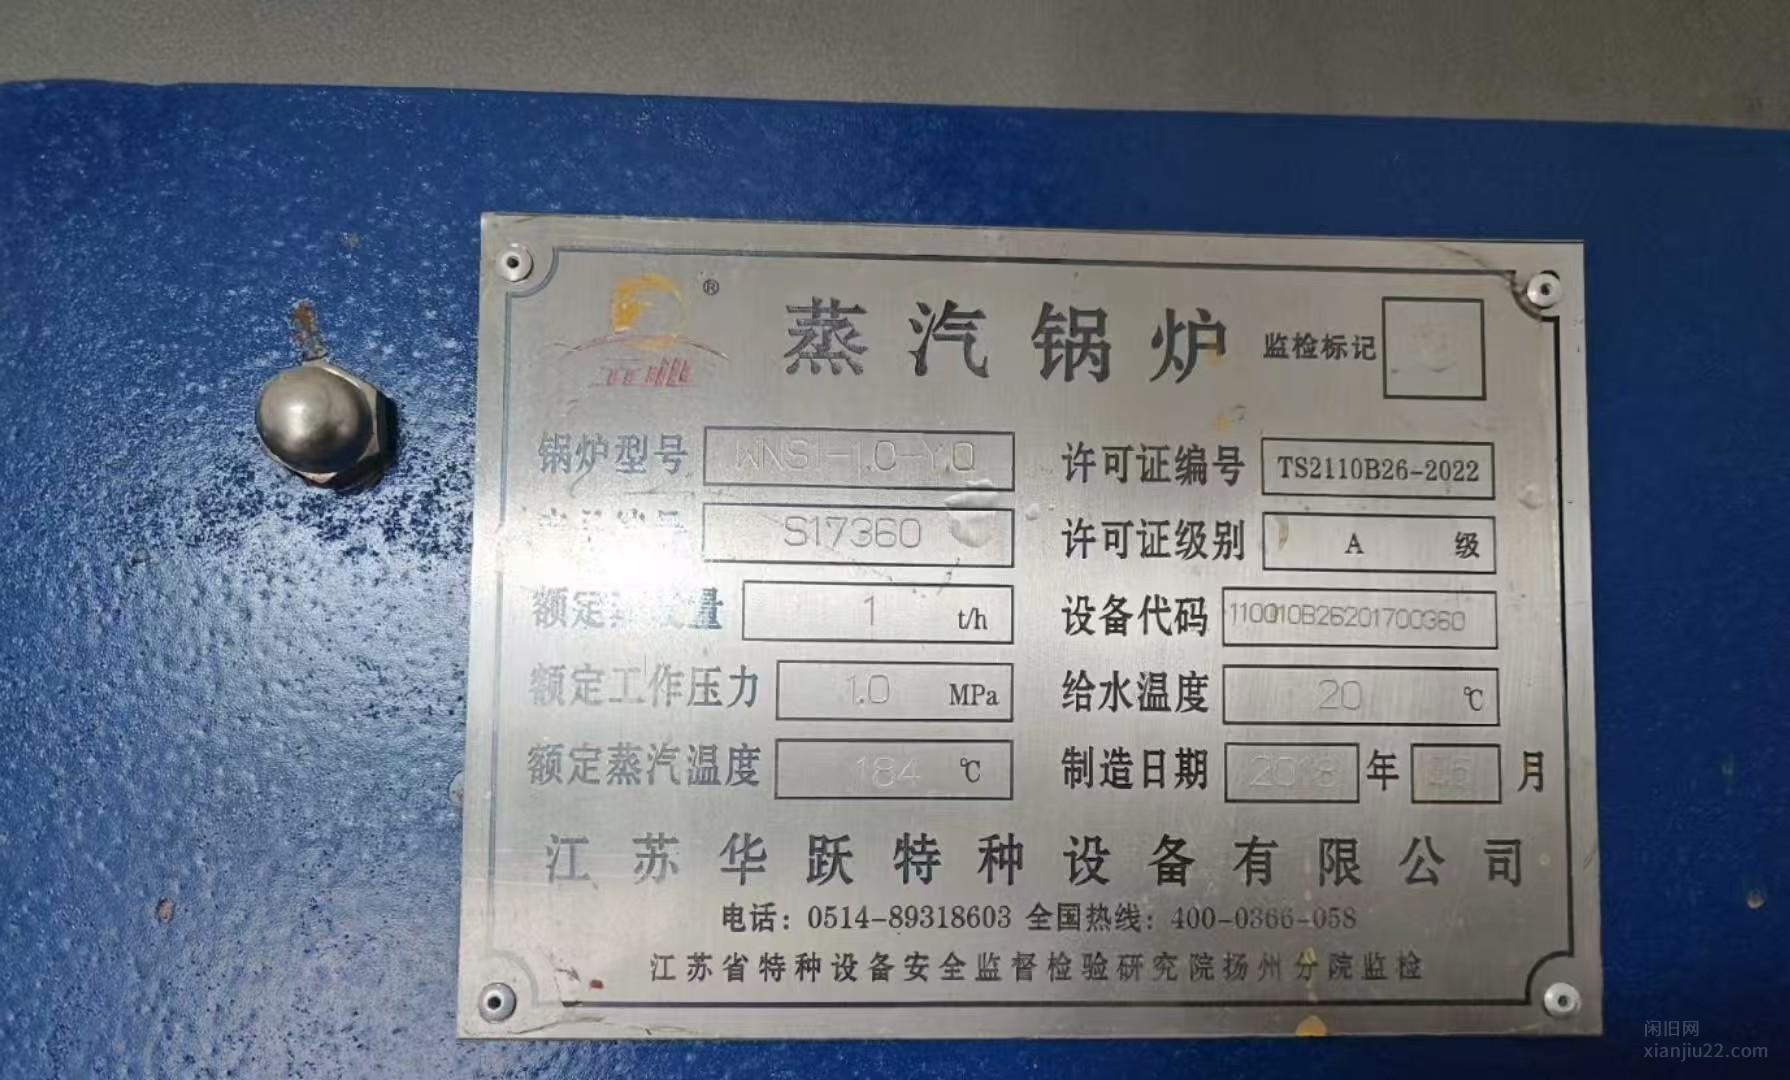 ®
蒸汽锅炉 监检标记
锅炉型号 WNS1-1.0-Y.Q 许可证编号 TS2110B26-2022
S17360 许可证级别 A 级
额定 量 1 t/h 设备代码 110010B26201700360
额定工作压力 1.0 MPa 给水温度 20 ℃
额定蒸汽温度 184 ℃ 制造日期 年 月
江苏华跃特种设备有限公司
电话：0514-89318603 全国热线：400-0366-058
江苏省特种设备安全监督检验研究院扬州分院监检
闲旧网
xianjiu22.com